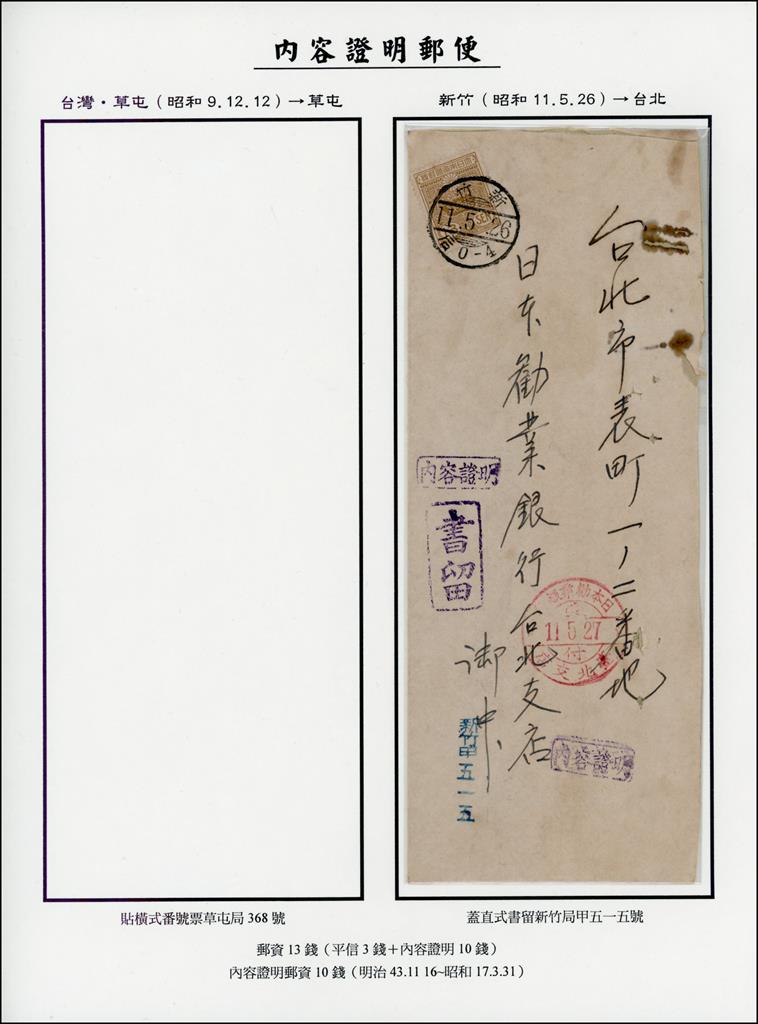 內容證明郵便
台灣・草屯（昭和 9.12.12）→草屯
新竹（昭和 11.5.26）→台北
新竹
11.5.26
0-4
SEN
台北市表町一ノ二番地
日本勧業銀行台北支店
御中
內容證明
書留
11 5 27
付
新竹甲五一五
內容證明
貼橫式番號票草屯局 368 號
蓋直式書留新竹局甲五一五號
郵資 13 錢（平信 3 錢＋內容證明 10 錢）
內容證明郵資 10 錢（明治 43.11 16~昭和 17.3.31）